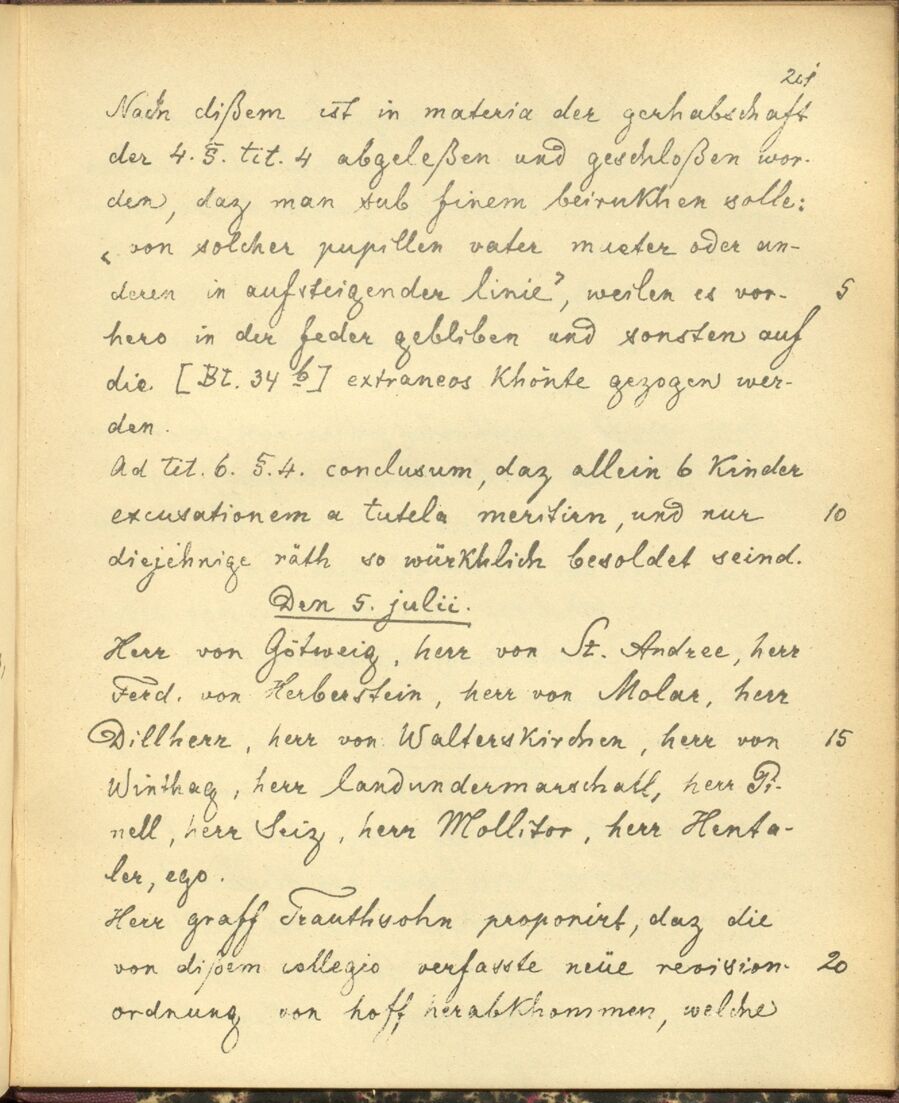 201
Nach dißem ist in materia der gerhabschaft
der 4. §. tit. 4 abgeleßen und geschloßen wor-
den, daz man sub finem beirukhen solle:
„von solcher pupillen vater mueter oder an-
deren in aufsteigender linie”, weilen es vor- 5
hero in der feder gebliben und sonsten auf
die [Bl. 34 b] extraneos khönte gezogen wer-
den.
Ad tit. 6. §. 4. conclusum, daz allein 6 kinder
excusationem a tutela meritirn, und nur 10
diejehnige räth so würkhlich besoldet seind.
Den 5. julii.
Herr von Götweig, herr von St. Andree, herr
Ferd. von Herberstein, herr von Molar, herr
Dillherr, herr von Walterskirchen, herr von 15
Winthag, herr landundermarschall, herr Pi-
nell, herr Seiz, herr Mollitor, herr Henta-
ler, ego.
Herr graff Trauthsohn proponirt, daz die
von dißem collegio verfasste neüe revision- 20
ordnung von hoff herabkhommen, welche